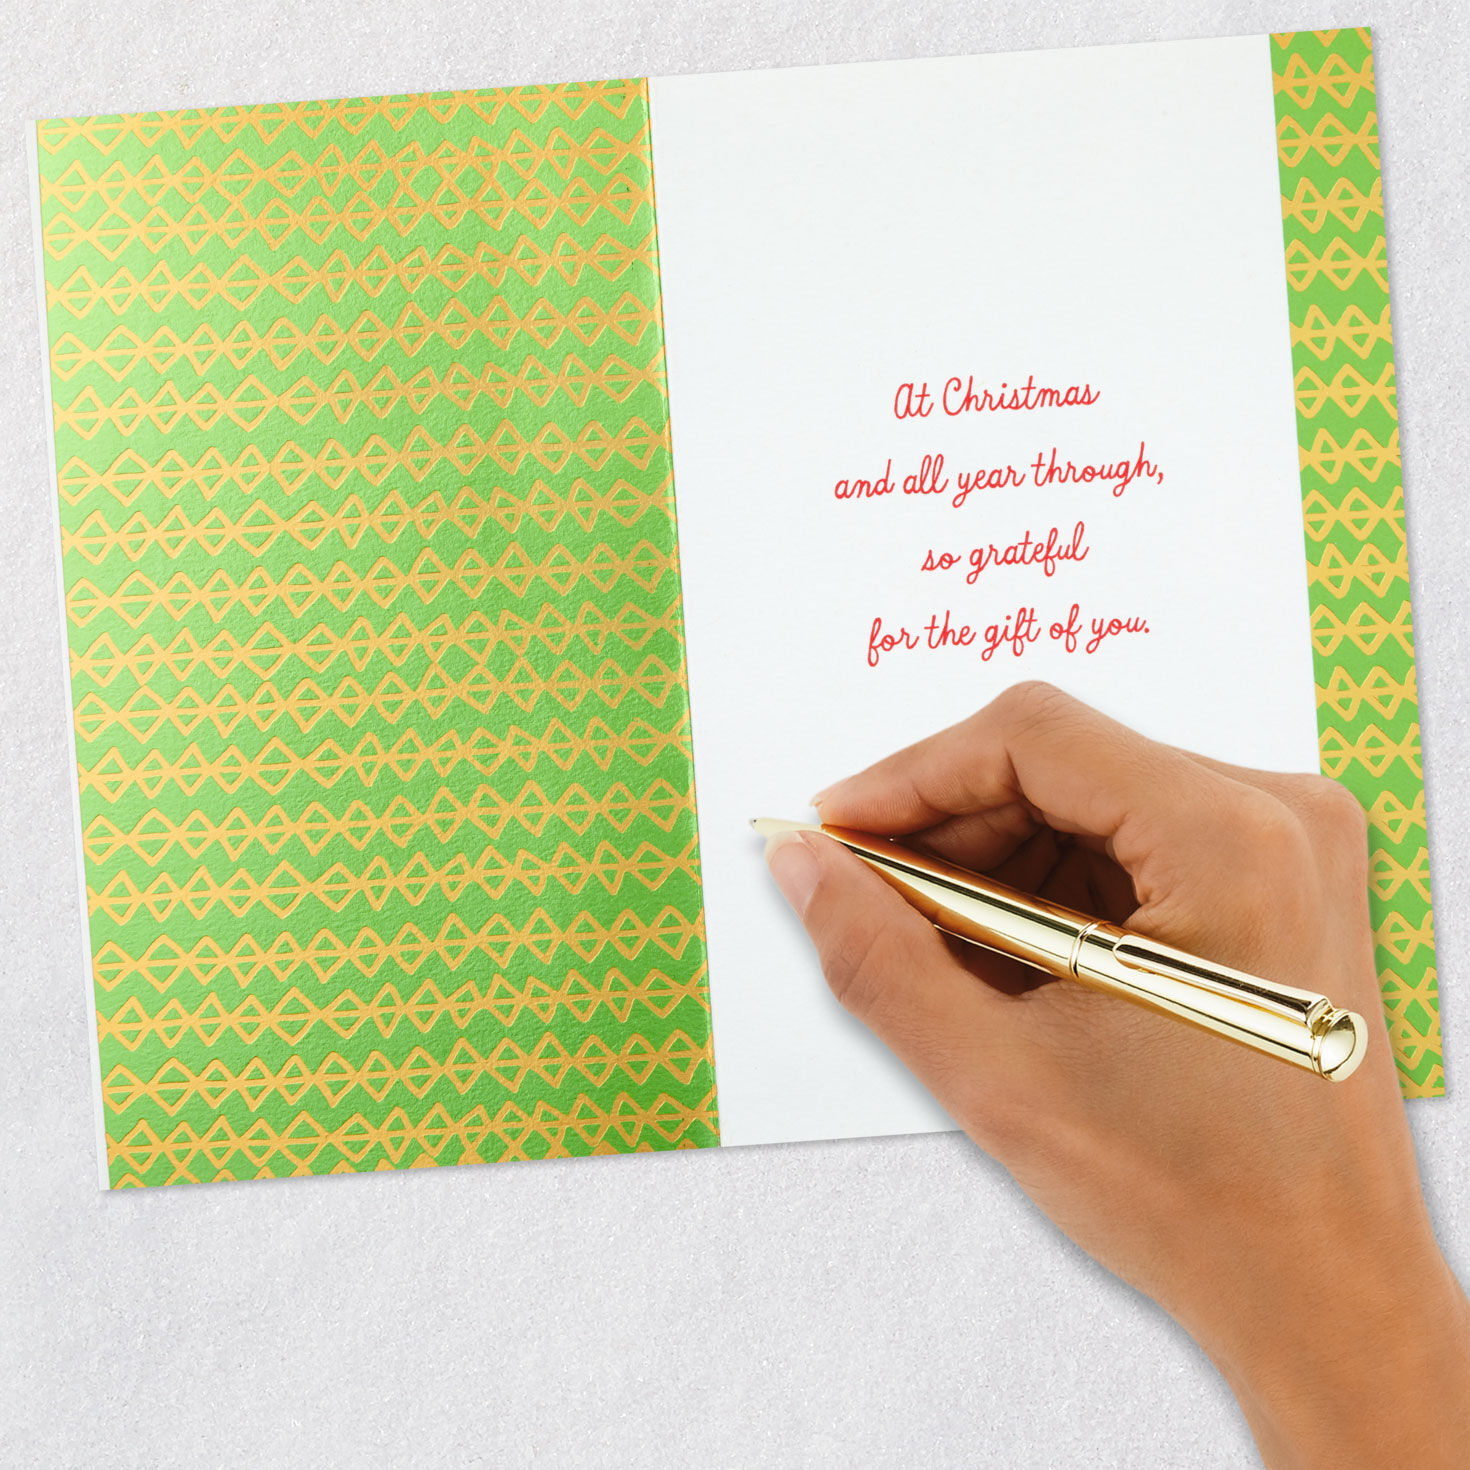 At Christmas
and all year through,
so grateful
for the gift of you.